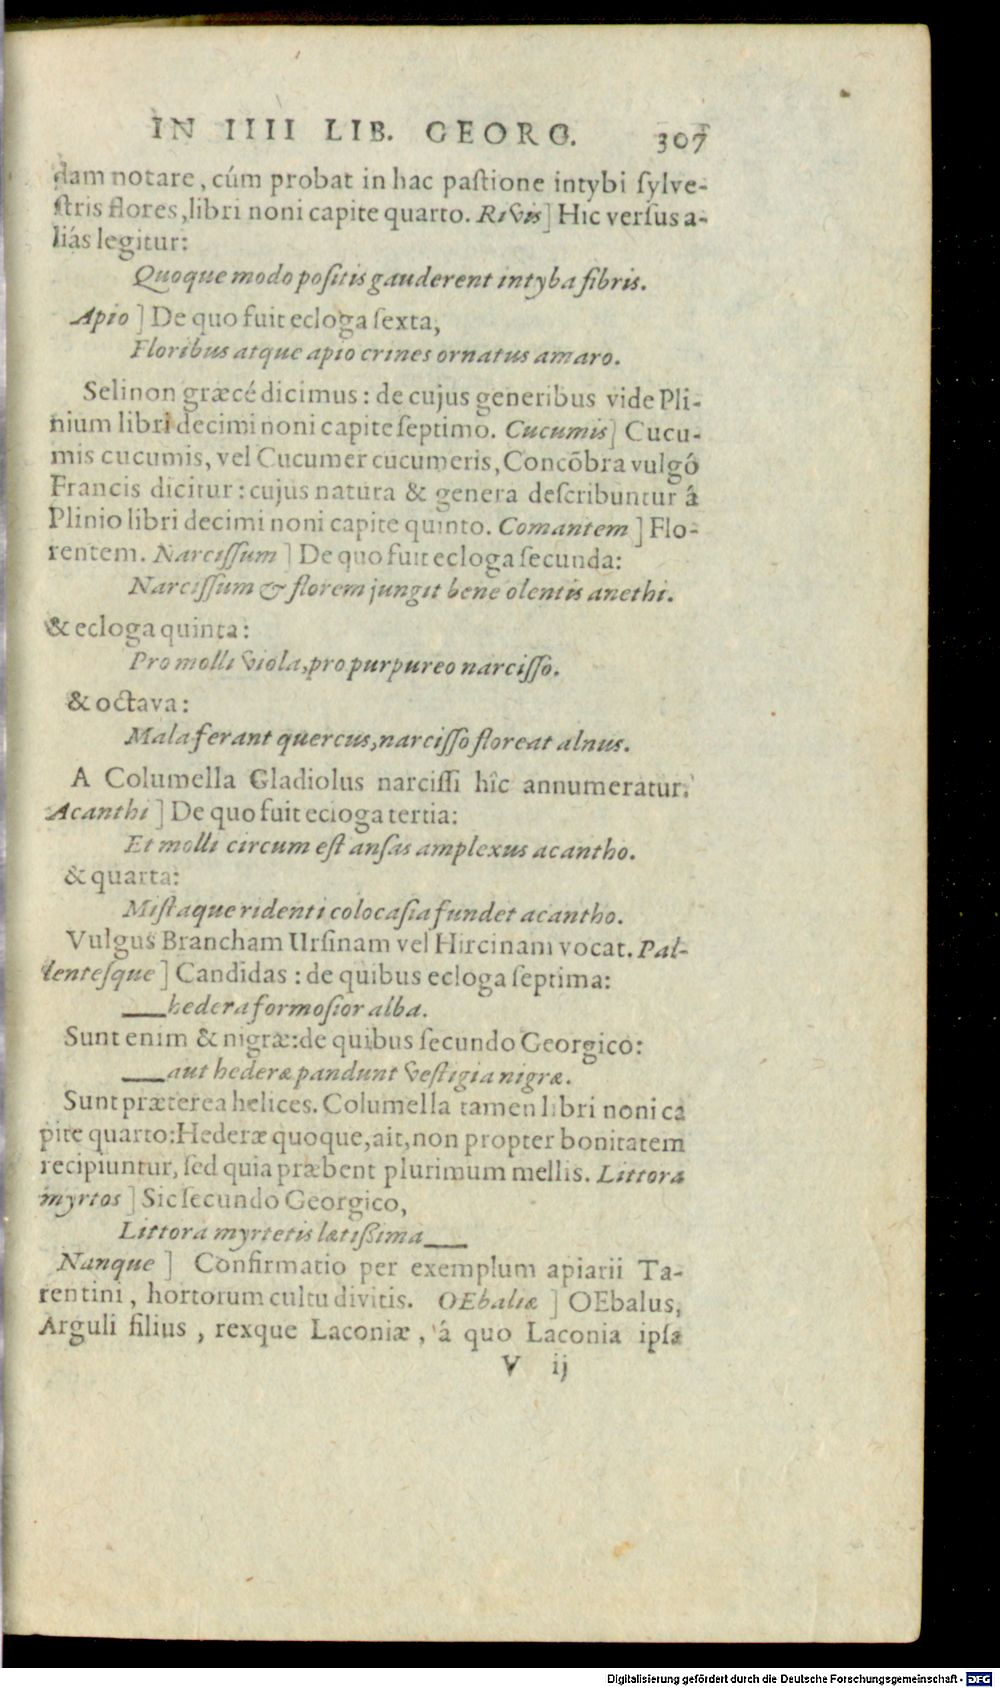 IN IIII LIB. GEORG. 307
dam notare, cúm probat in hac pastione intybi sylve-
stris flores, libri noni capite quarto. Rivis] Hic versus a-
liás legitur:
Quoque modo positis gauderent intyba fibris.
Apio] De quo fuit ecloga sexta,
Floribus atque apio crines ornatus amaro.
Selinon græcé dicimus: de cujus generibus vide Pli-
nium libri decimi noni capite septimo. Cucumis] Cucu-
mis cucumis, vel Cucumer cucumeris, Concõbra vulgó
Francis dicitur: cujus natura & genera describuntur á
Plinio libri decimi noni capite quinto. Comantem] Flo-
rentem. Narcissum] De quo fuit ecloga secunda:
Narcissum & florem jungit bene olentis anethi.
& ecloga quinta:
Pro molli viola, pro purpureo narcisso.
& octava:
Mala ferant quercus, narcisso floreat alnus.
A Columella Gladiolus narcissi hîc annumeratur.
Acanthi] De quo fuit ecloga tertia:
Et molli circum est ansas amplexus acantho.
& quarta:
Mistaque ridenti colocasia fundet acantho.
Vulgus Brancham Ursinam vel Hircinam vocat. Pal-
lentesque] Candidas: de quibus ecloga septima:
___hedera formosior alba.
Sunt enim & nigræ: de quibus secundo Georgico:
___aut hederæ pandunt vestigia nigræ.
Sunt præterea helices. Columella tamen libri noni ca
pite quarto: Hederæ quoque, ait, non propter bonitatem
recipiuntur, sed quia præbent plurimum mellis. Littora
myrtos] Sic secundo Georgico,
Littora myrtetis lætissima___
Nanque] Confirmatio per exemplum apiarii Ta-
rentini, hortorum cultu divitis. OEbaliæ] OEbalus,
Arguli filius, rexque Laconiæ, á quo Laconia ipsa
V ij
Digitalisierung gefördert durch die Deutsche Forschungsgemeinschaft - DFG